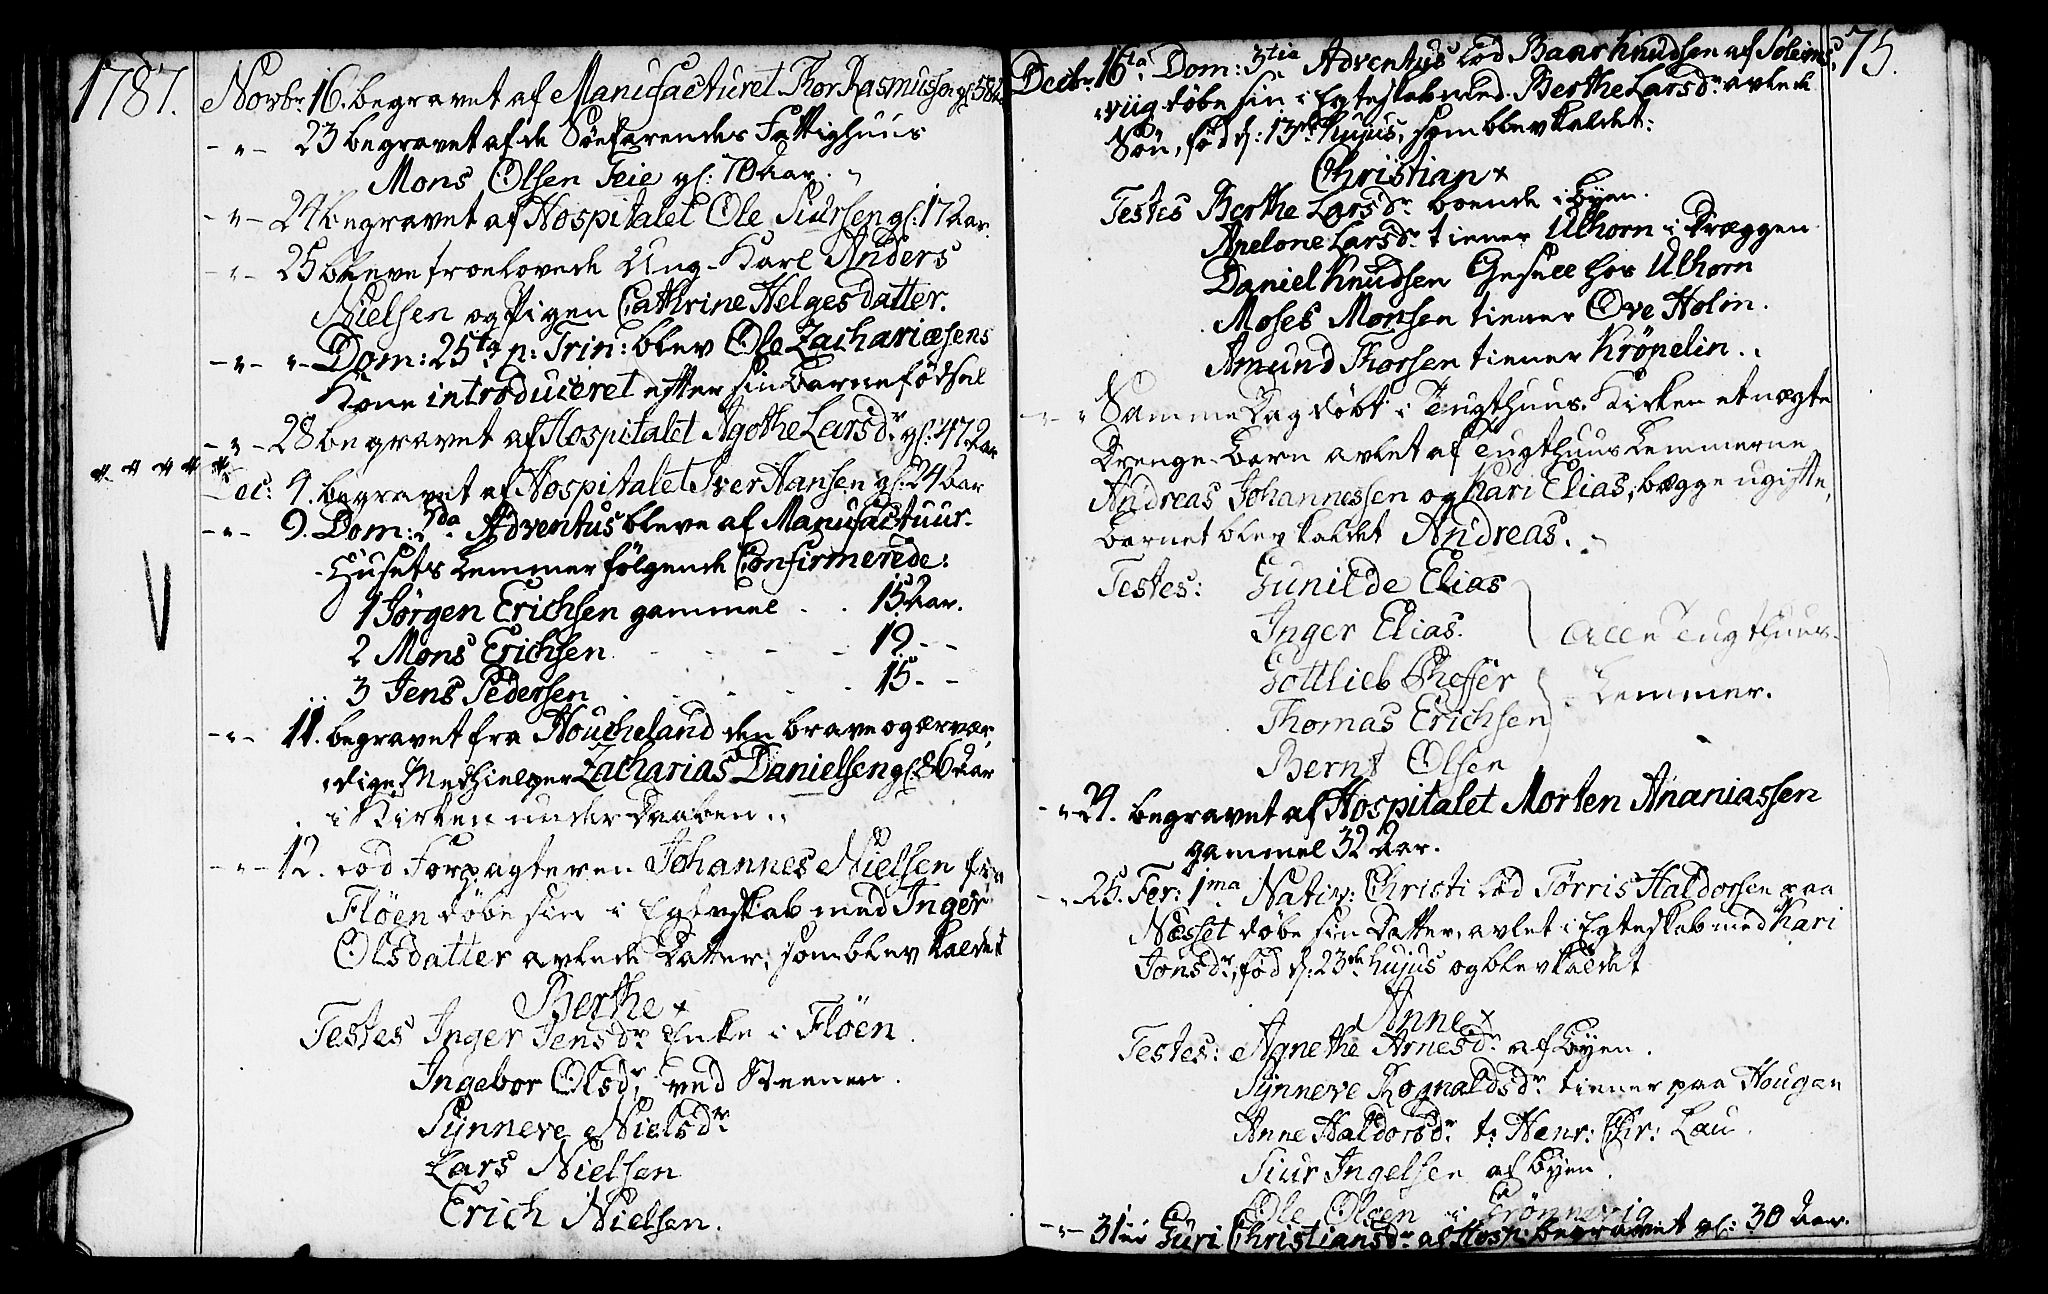 1787.
Novbr. 16. begravet af Manufacturet Thor Rasmussen gl. 58
- " - 23 begravet af de Søefarendes Fattighuus
Mons Olsen Feie gl: 70 Aar.
- " - 24 begravet af Hospitalet Ole Siursen gl: 17 Aar.
- " - 25 bleve troelovede Ung-Karl Anders
Nielsen og Pigen Cathrine Helgesdatter.
- " - " - Dom: 25ta p: Trin: blev Ole Zachariæsens
Kone introduceret efter sin Barnefødsel
- " - 28 begravet af Hospitalet Agothe Larsdr. gl: 47 Aar
Dec: 4. begravet af Hospitalet Iver Hansen gl: 24 Aar
- " - 9. Dom: 2da Adventus bleve af Manufactuur-
Husets Lemmer følgende Confirmerede:
1 Jørgen Erichsen gammel . . 15 Aar.
2 Mons Erichsen - - - - 19 - -
3 Jens Pedersen . . . . 15 - -
- " - 11. begravet fra Houcheland den brave og ærvær-
dige Medhielper Zacharias Danielsen gl: 86 Aar
i Kirken under Daaben.
- " - 12. lod Forpagteren Johannes Nielsen fra
Fløen døbe sin i Egteskab med Inger
Olsdatter avlede Datter, som blev kaldet
Berthe x
Testes Inger Jensdr. Enke i Fløen.
Ingebor Olsdr. ved Steenen.
Synneve Nielsdr.
Lars Nielsen
Erich Nielsen.
75.
Decbr. 16ta Dom: 3tia Adventus lod Baar Knudsen af Soleims-
viig døbe sin i Egteskab med Berthe Larsdr. avlede
Søn, fød d: 13de hujus, som blev kaldet:
Christian x
Testes Berthe Larsdr. boende i Byen.
Anelone Larsdr. tiener Ulhorn i Dræggen
Daniel Knudsen Gesell hos Ulhorn
Moses Monsen tiener Ove Holm.
Amund Thorsen tiener Krøpelin.
- " - Samme Dag døbt i Tugthuus-Kirken et uægte
Drenge-Barn avlet af Tugthuus Lemmerne
Andreas Johannessen og Kari Elias, begge ugifte,
Barnet blev kaldet Andreas.
Testes: Gunilde Elias
Inger Elias.
Gottlieb Pheffer
Thomas Erichsen
Bernt Olsen
Alle Tugthuus-
Lemmer.
- " 24. begravet af Hospitalet Morten Ananiassen
gammel 32 Aar.
- " 25. Fer: 1ma Nativ: Christi lod Tørris Haldorsen paa
Næsset døbe sin Datter, avlet i Egteskab med Kari
Jonsdr., fød d: 23de hujus og blev kaldet
Anne x
Testes: Agnethe Arnesdr. af Byen.
Synneve Rognaldsdr. tiener paa Hougen
Anne Haldorsdr. t: Henr: Chr: Lau.
Siur Ingelsen af Byen.
Ole Olsen i Grønnevig
- " - 31te Guri Christiansdr. af Hosp: begravet gl: 30 Aar.